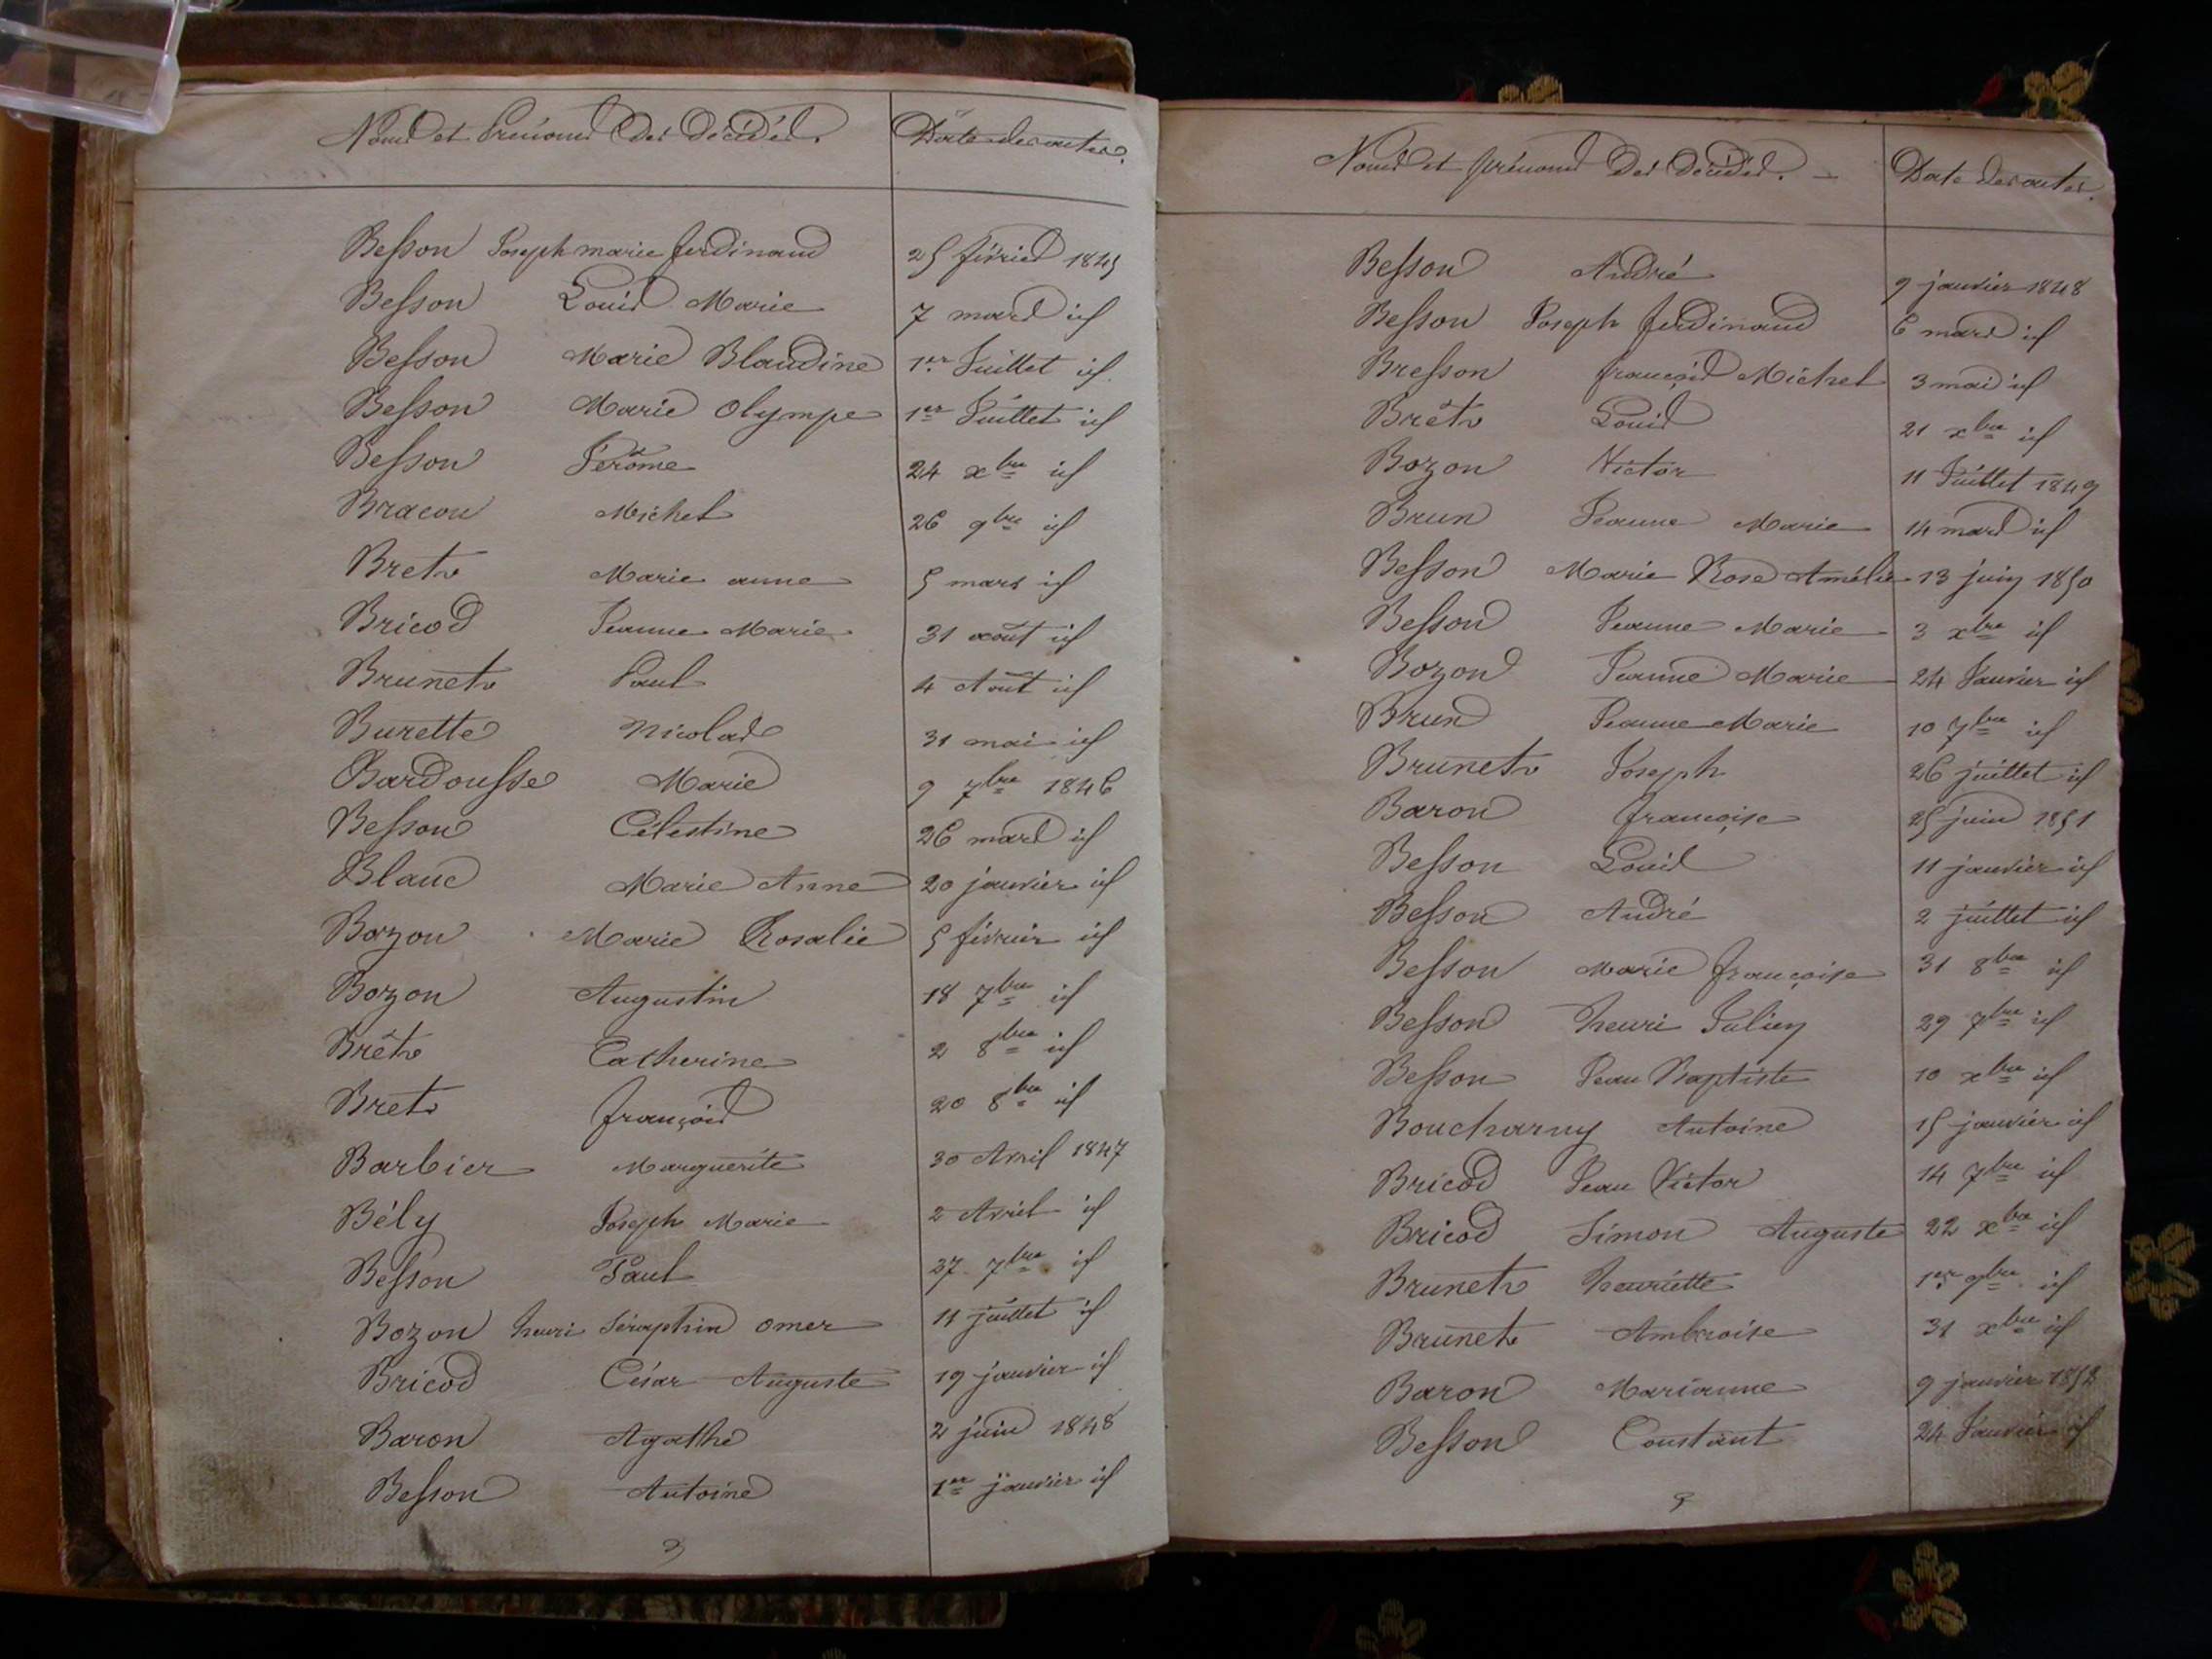 Noms et Prénoms des Décédés. Date des actes.
Besson Joseph marie ferdinand 25 février 1845
Besson Louis Marie 7 mars id
Besson Marie Blandine 1er Juillet id
Besson Marie Olympe 1er Juillet id
Besson Jérôme 24 xbre id
Bracon Michel 26 9bre id
Bret Marie anne 5 mars id
Bricod Jeanne Marie 31 août id
Brunet Paul 4 Août id
Burette Nicolas 31 mai id
Bardousse Marie 9 7bre 1846
Besson Célestine 26 mars id
Blanc Marie Anne 20 janvier id
Bozon Marie Rosalie 5 février id
Bozon Augustin 18 7bre id
Brêt Catherine 2 8bre id
Bret françois 20 8bre id
Barbier Marguerite 30 Avril 1847
Bély Joseph Marie 2 Avril id
Besson Paul 27 7bre id
Bozon henri Séraphin omer 11 juillet id
Bricod César Auguste 19 janvier id
Baron Agathe 2 juin 1848
Besson Antoine 1er janvier id
Noms et prénoms des décédés. Date des actes.
Besson André 9 janvier 1848
Besson Joseph ferdinand 6 mars id
Bresson françois Michel 3 mai id
Brêt Louis 21 xbre id
Bozon Victor 11 Juillet 1849
Brun Jeanne Marie 14 mars id
Besson Marie Rose Amélie 13 juin 1850
Besson Jeanne Marie 3 xbre id
Bozon Jeanne Marie 24 Janvier id
Brun Jeanne Marie 10 7bre id
Brunet Joseph 26 juillet id
Baron françoise 25 juin 1851
Besson Louis 11 janvier id
Besson André 2 juillet id
Besson Marie françoise 31 8bre id
Besson henri Julien 29 7bre id
Besson Jean Baptiste 10 xbre id
Boucharny Antoine 15 janvier id
Bricod Jean Victor 14 7bre id
Bricod Simon Auguste 22 xbre id
Brunet henriette 1er 9bre id
Brunet Ambroise 31 xbre id
Baron Marianne 9 janvier 1852
Besson Constant 24 Janvier id